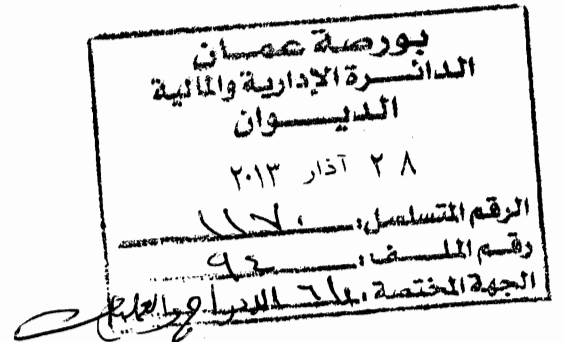 بورصة عمان
الدائرة الإدارية والمالية
الديوان
٢٨ آذار ٢٠١٣
الرقم المتسلسل: ١١٧٠
رقم الملف: ٩٤
الجهة المختصة: